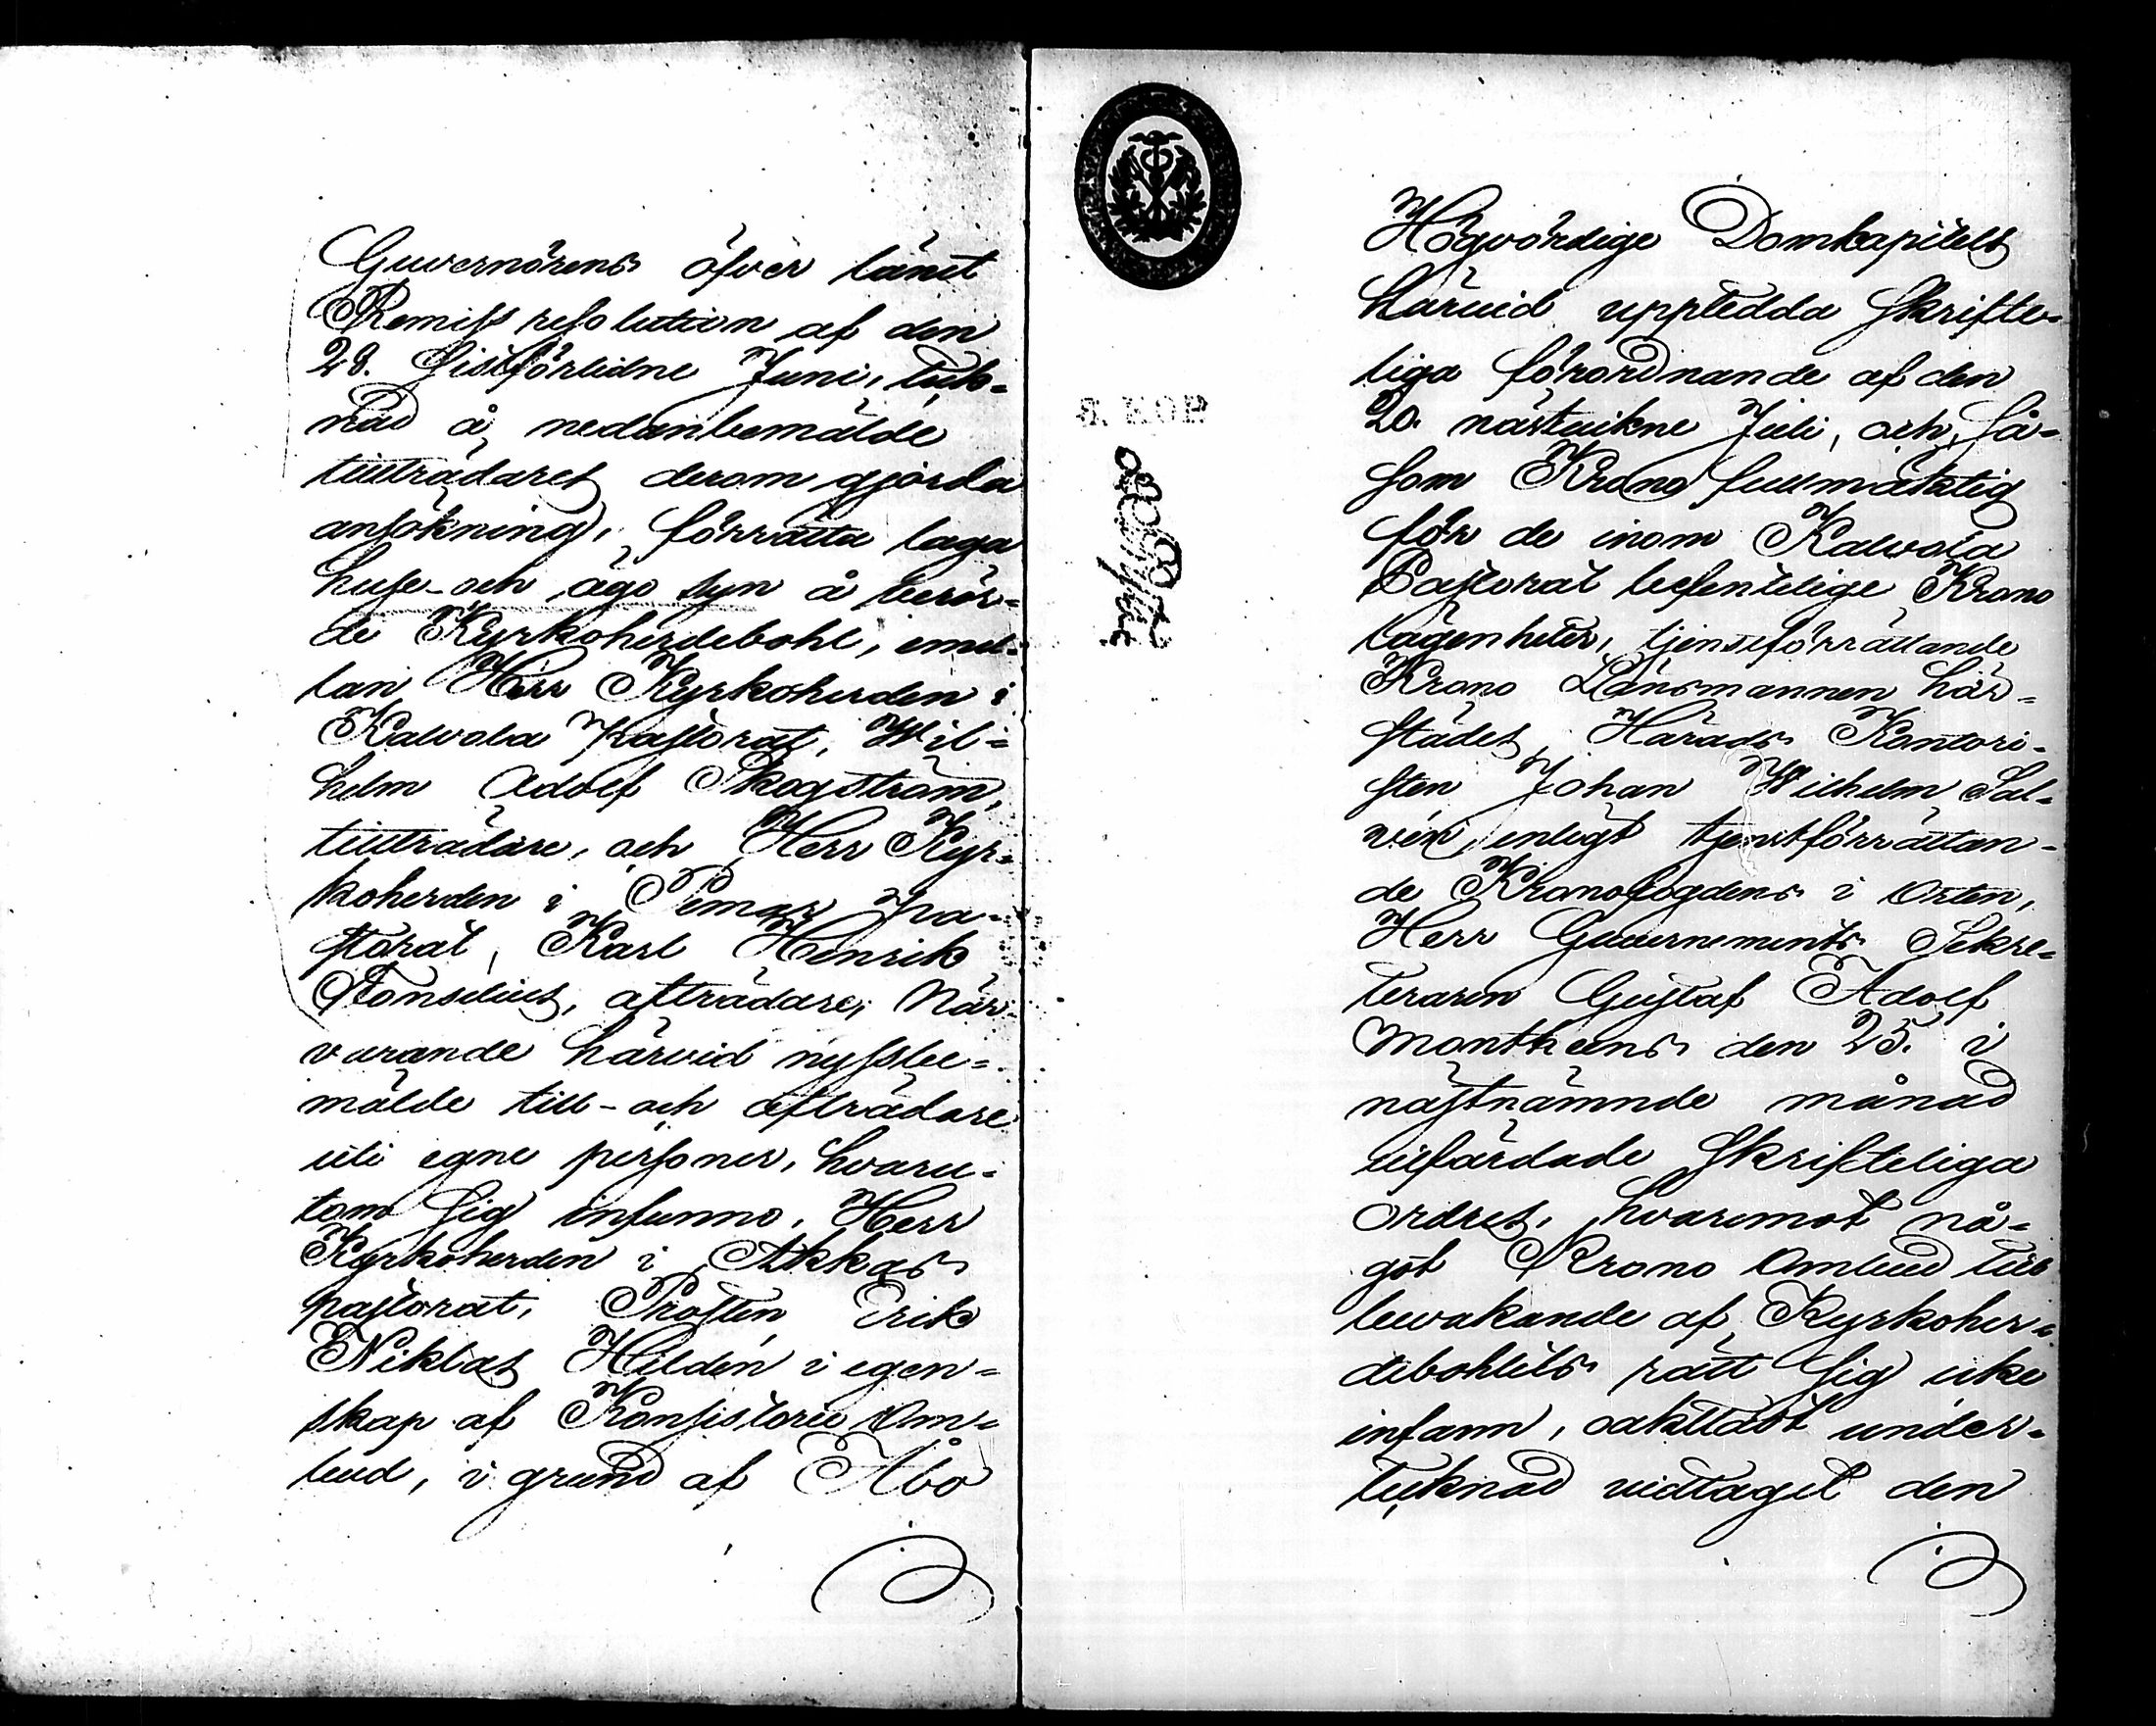 Guvernörens öfver länet
Remiss resolution af den
28. sistförlidne Juni, teck-
nad å nedanbemälde
tillträdares derom gjorda
ansökning, förrätta laga
huse- och ägo syn å berör-
de Kyrkoherdebohl, emel-
lan Herr Kyrkoherden i
Kalvola Pastorat, Wil-
helm Adolf Skogström,
tillträdare, och Herr Kyr-
koherden i Pemar Pa-
storat, Karl Henrik
Fonselius, afträdare, När-
varande härvid nyssbe-
mälde till- och afträdare
uti egne personer, hvaru-
tom sig infunno, Herr
Kyrkoherden i Akkas
pastorat, Prosten Erik
Niklas Hildén i egen-
skap af Konsistorii Om-
bud, i grund af Åbo
Högvördige Domkapitels
härvid upptedda skrifte-
liga förordnande af den
20. nästvikne Juli, och, så-
som Krono fullmäktig
för de inom Kalvola
Pastorat befintelige Krono
lägenheter, tjensteförrättande
Krono Länsmannen här-
städes, Härads Kontori-
sten Johan Wilhelm Sal-
vén, enligt tjenstförrättan-
de Kronofogdens i Orten,
Herr Guvernements Sekre-
teraren Gustaf Adolf
Monthéens den 25. i
nästnämnde månad
utfärdade skrifteliga
ordres, hvaremot nå-
got Krono Ombud till
bevakande af Kyrkoher-
debohlets rätt sig icke
infann, oaktadt under-
tecknad vidtagit den
8. KOP.